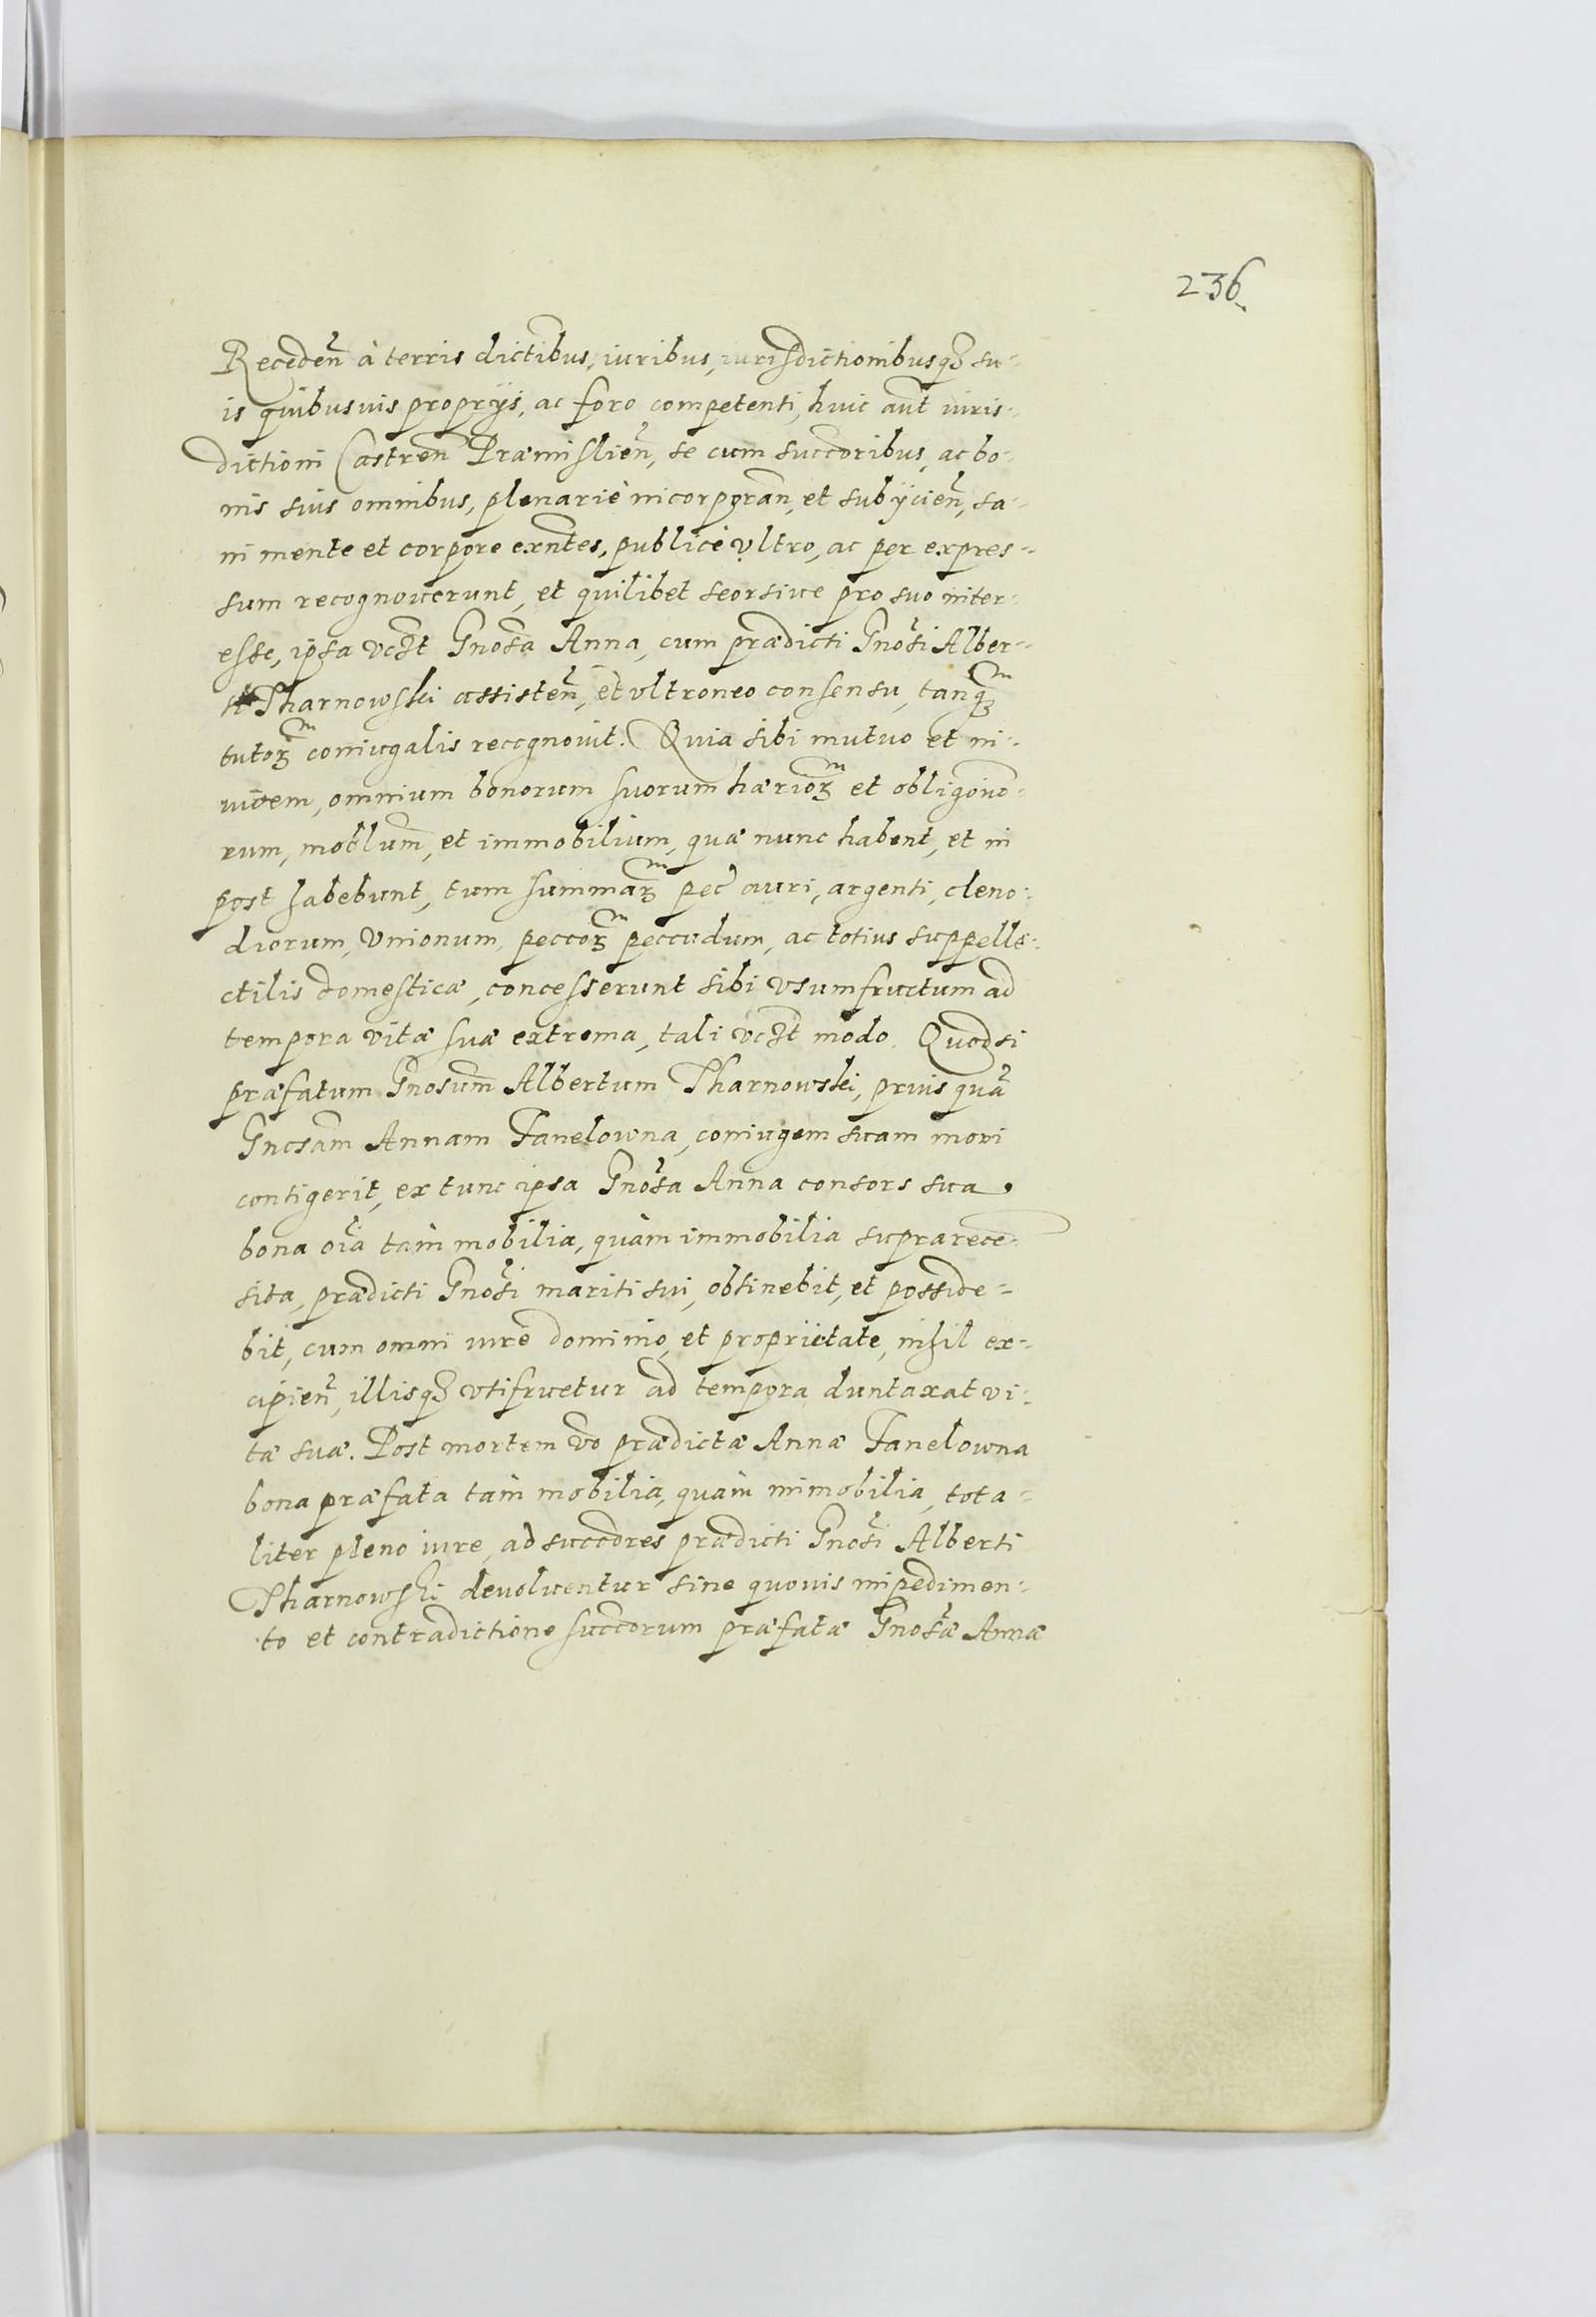 236.
Receden̄ à terris dictibus, iuribus, iurisdictionibusqȝ su-
is quibusuis proprijs, ac foro competenti, huic aūt iuris-
dictioni Castren̄ Præmislien̄, se cum succoribus, ac bo-
nis suis omnibus, plenariè incorporan̄, et subijcien̄, sa-
ni mente et corpore exn̄tes, publicè vltro, ac per expres-
sum recognouerunt, et quilibet seorsiue pro suo inter-
esse, ipsa vcȝt Gnosa Anna, cum prædicti Gnosi Alber-
ti Tharnowski assisten̄, et vltroneo consensu, tanqȝ
tutorȝ coniugalis recognouit. Quia sibi mutuo et in-
uicem, omnium bonorum suorum hæriorȝ et obligono-
rum, moblum̄, et immobilium, quæ nunc habent, et in
post habebunt, tum summarȝ pec̄ auri, argenti, cleno-
diorum, Vnionum, peccorȝ peccudum, ac totius suppelle-
ctilis domesticæ, concesserunt sibi vsumfructum ad
tempora vitæ suæ extrema, tali vcȝt modo. Quodsi
præfatum Gnosum Albertum Tharnowski, prius quā
Gnosam Annam Fanelowna, coniugem suam mori
contigerit, ex tunc ipsa Gnosa Anna consors sua
bona oīa tàm mobilia, quàm immobilia suprarece-
sita, prædicti Gnosi mariti sui, obtinebit, et posside-
bit, cum omni iure dominio, et proprietate, nihil ex-
cipien̄, illisqȝ vtifruetur ad tempora duntaxat vi-
tæ suæ. Post mortem vo prædictæ Annæ Fanelowna
bona præfata tàm mobilia, quàm immobilia, tota-
liter pleno iure, ad succores prædicti Gnosi Alberti
Tharnowski deuoluentur sine quouis impedimen-
to et contradictione succorum præfatæ Gnosæ Annæ